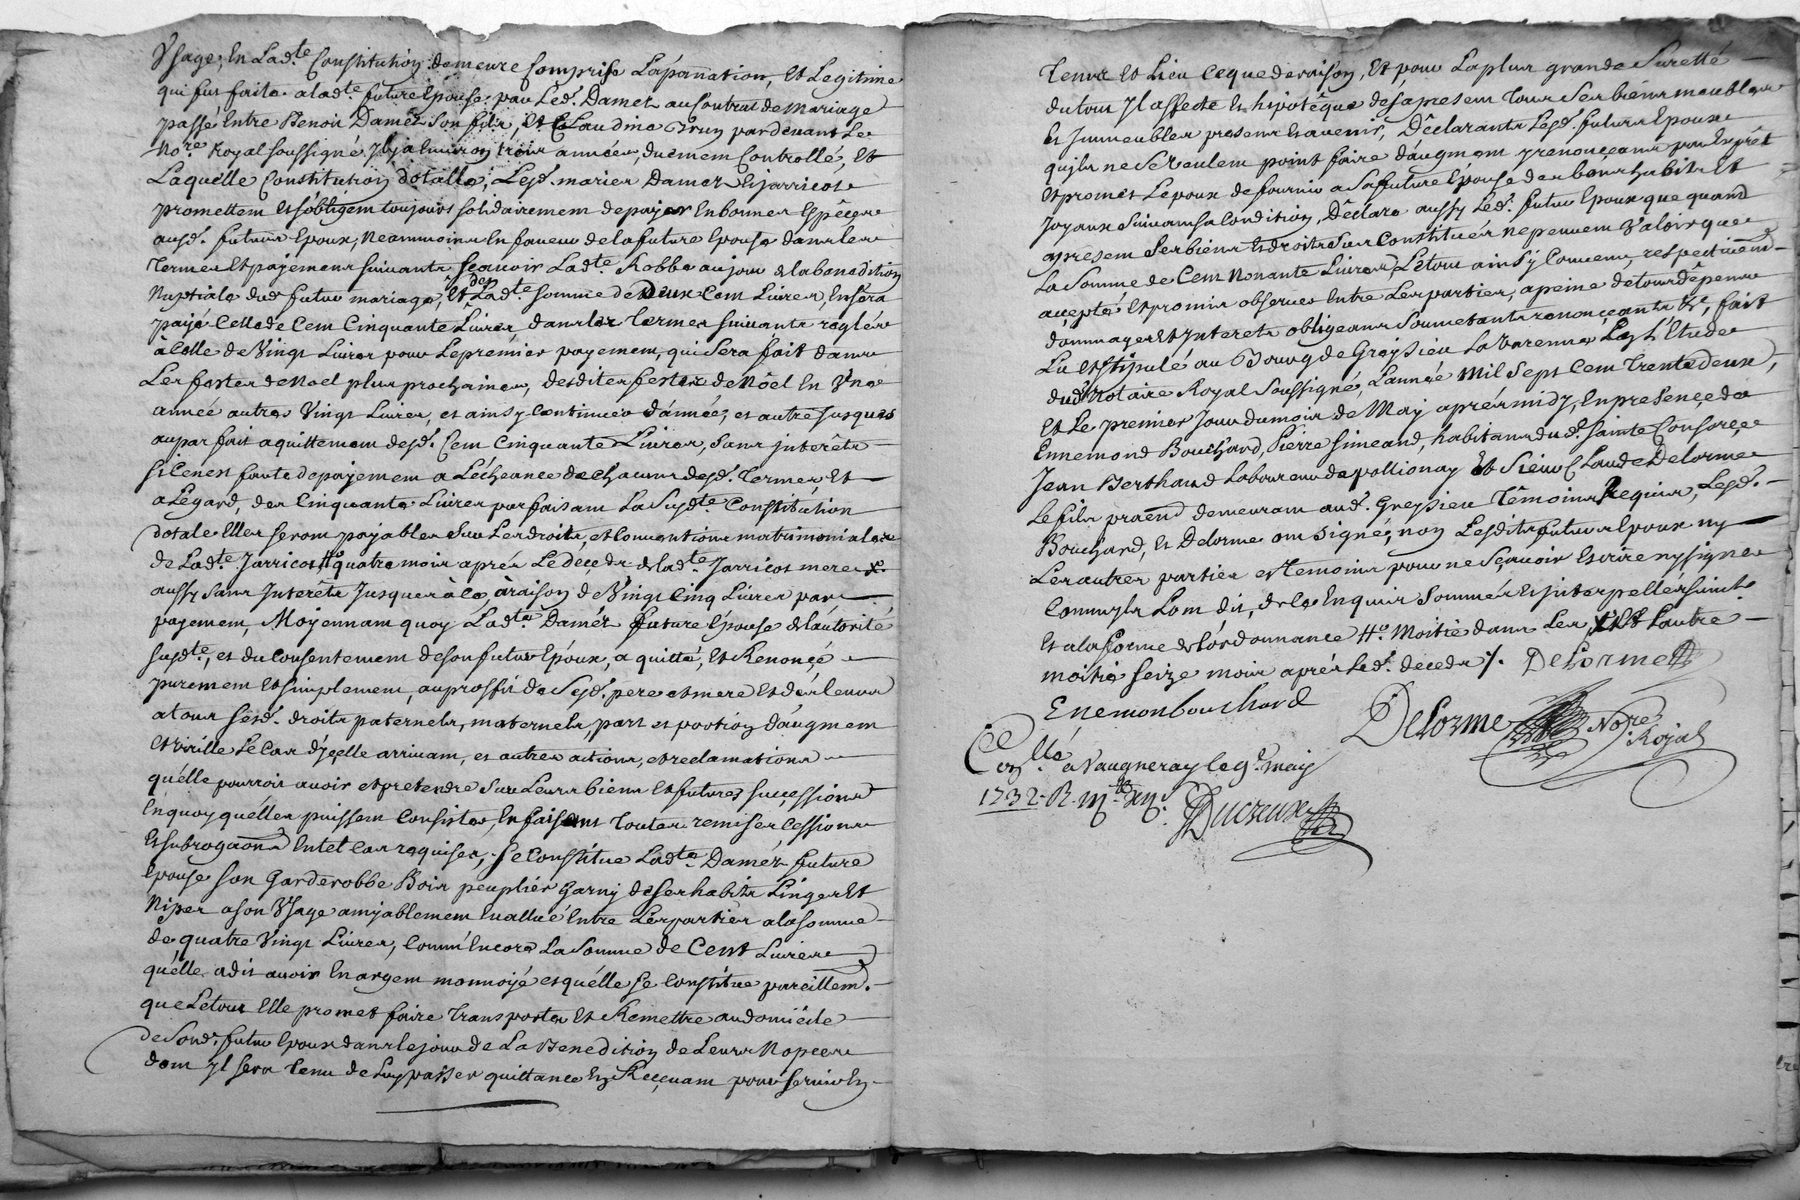 Usage, En Lad.te Constitution demeure Comprise L'apanation, Et Legitime
qui fut faite a lad.te future Epouse par Led. Damet au Contrat de Mariage
passé Entre Benoit Damez son fils, Et Claudine pardevant Le
No.re Royal soussigné Il y a Environ trois années, duement Controllé, Et
Laquelle Constitution dotalle, Lesd. mariez Damez Et Jarricot
promettent Et s'obligent toujours solidairement de payer En bonnes Espêces
ausd. futurs Epoux, Neammoins En faveur de la future Epouse dans les
Termes Et payemens suivants, sçavoir Lad.te Robbe au jour de la benediction
Nuptiale dud. futur mariage, Et Lad.te somme de Deux Cent Livres, En sera
payé Celle de Cent Cinquante Livres, dans les Termes suivants reglés
à Celle de Vingt Livres pour Le premier payement, qui sera fait dans
Les festes de Noel plus prochaines, desdites festes de Nôel En Une
année autres Vingt Livres, et ainsy Continuer d'année, et autre Jusques
au parfait aquittement desd. Cent Cinquante Livres, sans interêts
si Ce n'est faute de payement a L'écheance de chacuns desd. Termes, Et
a L'égard, des Cinquante Livres parfaisant La susd.te Constitution
dotale Elles seront payables sur Les droits, et Conventions matrimoniales
de Lad.te Jarricot #o quatre mois aprés Le deçeds de lad.te Jarricot mere x
aussy sans Interêts Jusques à Ce à raison de Vingt Cinq Livres par
payement, Moyennant quoy Lad.te Daméz future Epouse de l'autorité
susd.te, et du Consentement de son futur Epoux, a quitté, Et Renonçé
purement Et simplement, au proffit de Sesd. pere et mere Et des leurs
a tous sesd. droits paternels, maternels, part et portion d'augment
Et virille Le Cas d'yçelle arrivant, et autres actions, et reclamations
qu'elle pourroit avoir et pretendre Sur Leurs biens Et futures successions
En quoy qu'elles puissent Consister, En faisant Toutes remises Cessions
Et subrogaons En tel Cas requises, se Constitue Lad.te Daméz future
Epouse son Garderobbe Bois peuplier Garny de Ses habits Linges Et
Nipes a son Usage amyablement Evallué Entre Les parties a la somme
de quatre Vingt Livres, Comm'Encore La Somme de Cent Livres
qu'elle a dit avoir En argent monnoyé et qu'elle se Constitue pareillem.t
que Le tout Elle promet faire Transporter Et Remettre au domicile
de Sond. futur Epoux dans le jour de La Benediction de Leurs Nopces
dont Il sera Tenu de Luy passer quittance En Reçevant pour servir En
Tenir Et Lieu Ce que de raison, Et pour La plus grande Suretté
du tout Il affecte Et hipotêque des apresent Tous Ses biens meubles
Et Immeubles presens Et avenir, Déclarants Lesd. futurs Epoux
qu'ils ne se veulent point faire d'augment y renonçeans par Exprêt
Et promet L'epoux de fournir a Sa future Epouse des bons habits Et
Joyaux Suivant sa Condition, Déclare aussy Led. futur Epoux que quand
apresent Ses biens Et droits Sus Constitués ne peuvent Valoir que
La Somme de Cent Nonante Livres, Le tout ainsy Convenu, respectivem.t
açepté Et promis observer Entre Les parties, a peine de tous dêpens
dommages Et Interets obligeans Soumettants renonçeants &c, fait
Lu Et Stipulé au Bourg de Grésieu La Varenne L'Etude
dud. Notaire Royal Soussigné, L'année Mil Sept Cent Trente deux,
Et Le premier Jour du mois de May aprés midy, En presençe de
Ennemond Bouchard, Pierre Simeand, habitans dud. Sainte Consorçe
Jean Berthaud Laboureur de pollionay Et Sieur Claude Delorme
Le fils demeurant aud. Greysieu Têmoins Requis, Lesd.
Bouchard, Et Delorme ont Signé, non Lesdits futurs Epoux ny
Les autres parties et Temoins pour ne Sçavoir Escrire ny signer
Comm'ils L'ont dit, de Ce Enquis Sommés Et Interpellés suiv.t
Et a la forme de l'ordonnance #o Moitié dans Les Et L'autre
moitié seize mois aprés Led. deceds /. Delorme
Enemon bouchard
Delorme No.re Royal
Con.llé a Vaugneray le 9.e may
1732. R.
Ducreux